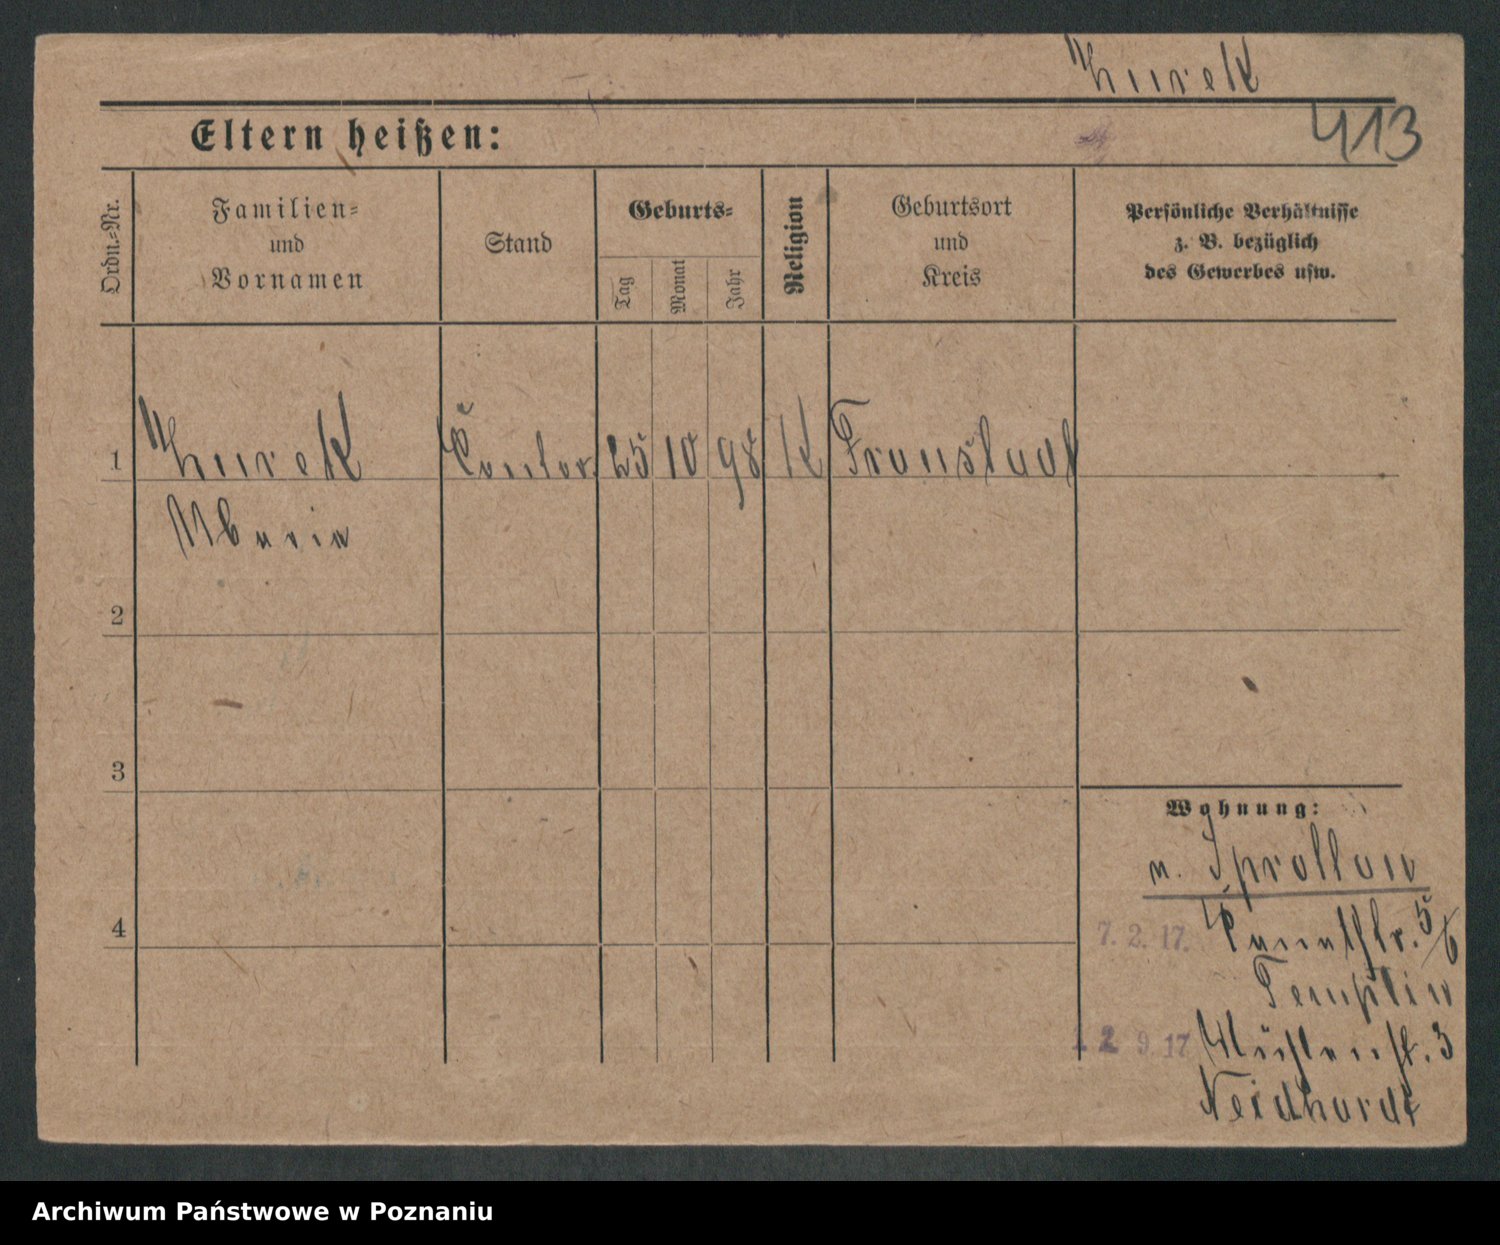 Zurek
413
Eltern heißen:
Ordn.-Nr.
Familien-
und
Vornamen
Stand
Geburts-
Tag
Monat
Jahr
Religion
Geburtsort
und
Kreis
Persönliche Verhältnisse
z. B. bezüglich
des Gewerbes usw.
1 Zurek Contor. 25 10 98 K Fraustadt
Maria
2
3
4
Wohnung:
n. Sprottau
7. 2. 17. 5/6
Templin
12 9. 17 Mühlenst. 3
Neidhardt
Archiwum Państwowe w Poznaniu